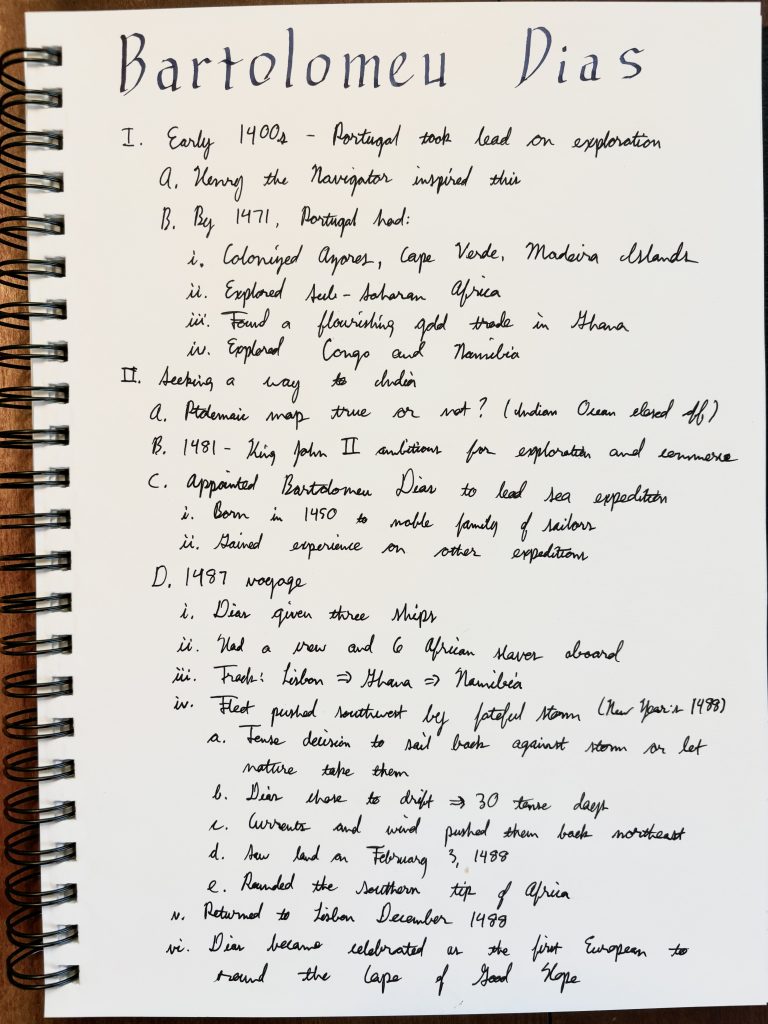 Bartolomeu Dias
I. Early 1400s - Portugal took lead on exploration
A. Henry the Navigator inspired this
B. By 1471, Portugal had:
i. Colonized Azores, Cape Verde, Madeira Islands
ii. Explored sub-saharan Africa
iii. Found a flourishing gold trade in Ghana
iv. Explored Congo and Namibia
II. Seeking a way to India
A. Ptolemaic map true or not? (Indian Ocean closed off)
B. 1481 - King John II ambitious for exploration and commerce
C. Appointed Bartolomeu Dias to lead sea expedition
i. Born in 1450 to noble family of sailors
ii. Gained experience on other expeditions
D. 1487 voyage
i. Dias given three ships
ii. Had a crew and 6 African slaves aboard
iii. Track: Lisbon ⇒ Ghana ⇒ Namibia
iv. Fleet pushed southwest by fateful storm (New Year's 1488)
a. Tense decision to sail back against storm or let
nature take them
b. Dias chose to drift ⇒ 30 tense days
c. Currents and wind pushed them back northeast
d. Saw land on February 3, 1488
e. Rounded the southern tip of Africa
v. Returned to Lisbon December 1488
vi. Dias became celebrated as the first European to
round the Cape of Good Hope